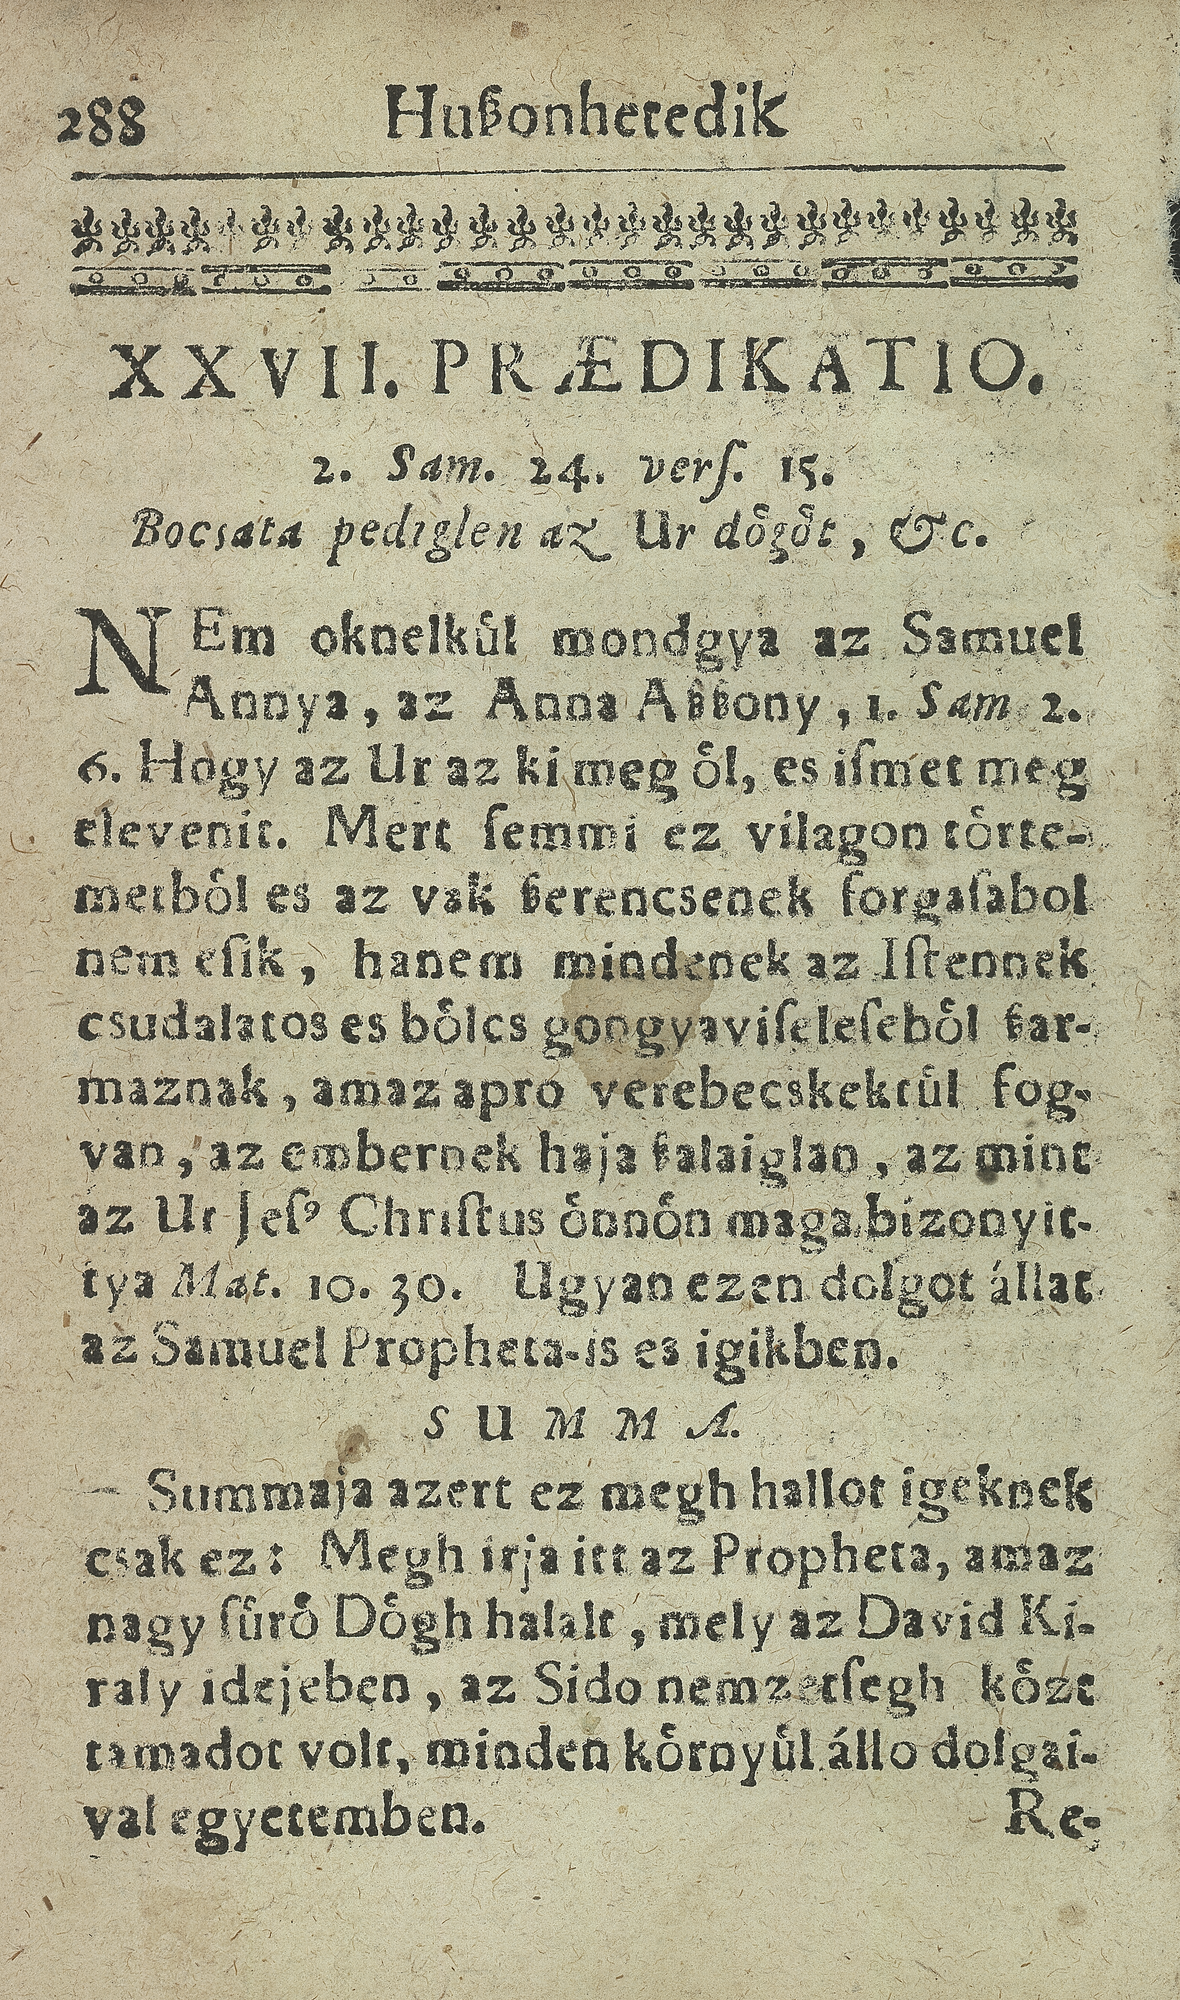 288 Hußonhetedik
XXVII. PRÆDIKATIO.
2. Sam. 24. verſ. 15.
Bocsata pediglen az Ur dögöt, &c.
NEm oknelkül mondgya az Samuel
Annya, az Anna Aßßony, 1. Sam 2.
6. Hogy az Ur az ki meg öl, es iſmet meg
elevenit. Mert ſemmi ez vilagon törte-
metböl es az vak ßerencsenek forgaſabol
nem eſik, hanem mindenek az Iſtennek
csudalatos es bölcs gongyaviſeleſeböl ßar-
maznak, amaz apro verebecskektül fog-
van, az embernek haja ßalaiglan, az mint
az Ur Jeſꝰ Chriſtus önnön maga bizonyit-
tya Mat. 10. 30. Ugyan ezen dolgot állat
az Samuel Propheta-is es igikben.
SUMMA.
Summaja azert ez megh hallot igeknek
csak ez: Megh irja itt az Propheta, amaz
nagy ſürö Dögh halalt, mely az David Ki-
raly idejeben, az Sido nemzetſegh közt
tamadot volt, minden környül állo dolgai-
val egyetemben.
Re-